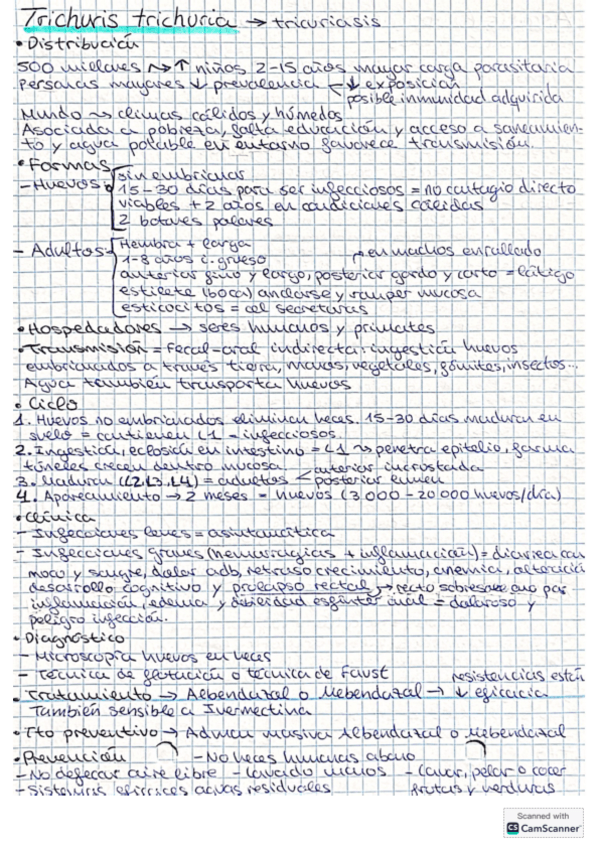 Trichuris trichuria → tricuriasis
• Distribución
500 millones ↝ ↑ niños 2-15 años mayor carga parasitaria
Personas mayores ↓ prevalencia ↓ exposición
posible inmunidad adquirida
Mundo ↝ climas cálidos y húmedos
Asociada a pobreza, falta educación y acceso a saneamien-
to y agua potable en entorno favorece transmisión.
• Formas
- Huevos sin embrionar
15-30 días para ser infecciosos = no contagio directo
viables + 2 años en condiciones cálidas
2 botones polares
- Adultos Hembra + larga
1-8 años i. grueso
en machos enrollado
anterior fino y largo, posterior gordo y corto = látigo
estilete (boca) anclarse y romper mucosa
esticocitos = cel secretoras
• Hospedadores → seres humanos y primates
• Transmisión = Fecal-oral indirecta: ingestión huevos
embrionados a través tierra, manos, vegetales, fómites, insectos...
Agua también transporta huevos
• Ciclo
1. Huevos no embrionados eliminan heces. 15-30 días maduran en
suelo = contienen L1 - infecciosos
2. Ingestión, eclosión en intestino = L1 ↝ penetra epitelio, forma
túneles crecen dentro mucosa.
3. Madura (L2, L3, L4) = adultos anterior incrustada
posterior lumen
4. Apareamiento → 2 meses = huevos (3 000 - 20 000 huevos/día)
• Clínica
- Infecciones leves = asintomática
- Infecciones graves (hemorragias + inflamación) = diarrea con
moco y sangre, dolor adb, retraso crecimiento, anemia, alteración
desarrollo cognitivo y prolapso rectal → recto sobresale ano por
inflamación, edema y debilidad esfínter anal = doloroso y
peligro infección.
• Diagnóstico
- Microscopía huevos en heces
- Técnica de flotación o técnica de Faust
resistencias están
• Tratamiento → Albendazol o Mebendazol → ↓ eficacia
También sensible a Ivermectina
• Tto preventivo → Admon masiva Albendazol o Mebendazol
• Prevención - No heces humanas abono
- No defecar aire libre - Lavado manos - Lavar, pelar o cocer
- Sistemas eficaces aguas residuales frutas y verduras
Scanned with
CS CamScanner